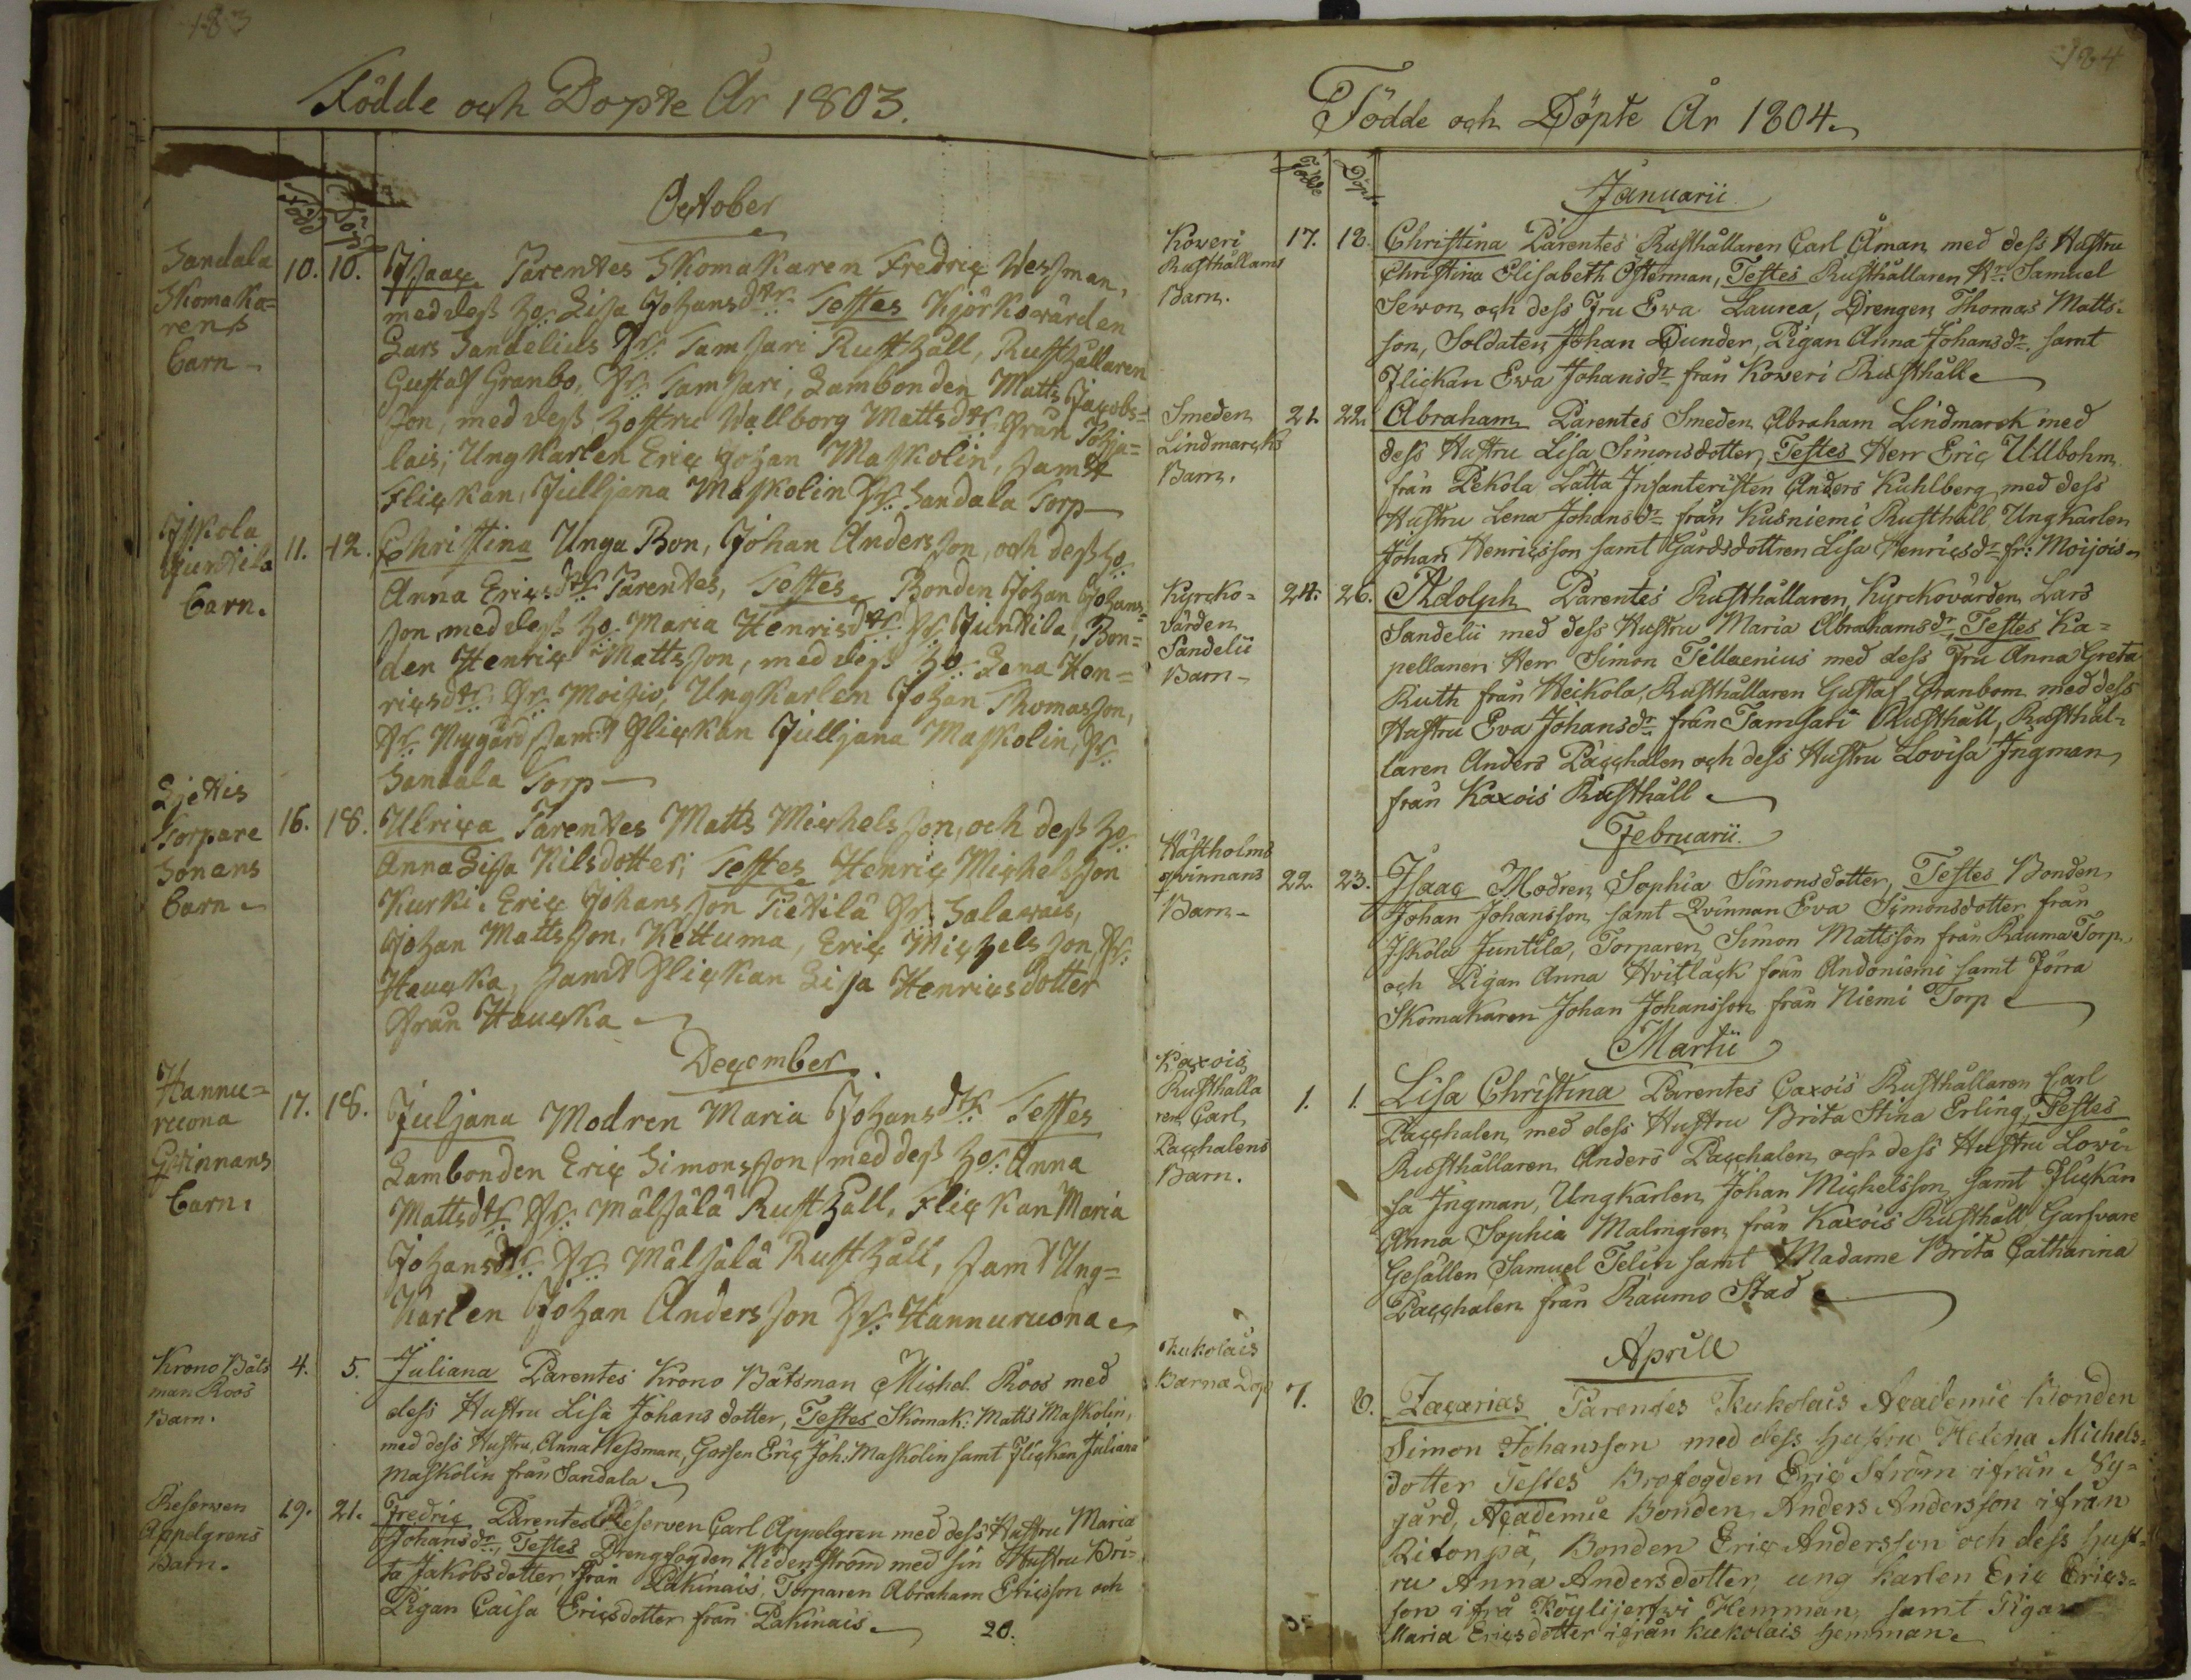 183
Födde och Dopte År 1803.
Född
Döpt
October
Sandala
Skomaka=
rens
barn
10. 10.
Isaac Parentes Skomakaren Fredric Wessman,
med dess ho: Lisa Johansdtr Testes Kjörkowärden
Lars Sandelius fr: Tamsari Rusthåll, Rusthållaren
Gustaf Granbo, fr: Tamsari, Lambonden Matts Jacobs=
son, med dess hostru Wallborg Mattsdtr från Pohja=
lais; Ungkarlen Eric Johan Maskolin, samt
Flickan, Julljana Maskolin fr: Sandala Torp
Iskola
Juntila
barn.
11. 12.
Christina Unga Bon, Johan Andersson, och dess ho
Anna Ericsdtr Parentes, Testes Bonden Johan Johans=
son med dess ho Maria Henrisdtr fr: Juntila, Bon=
den Henric Mattsson, med dess ho Lena Hen=
ricsdtr fr: Moisio, Ungkarlen Johan Thomasson,
fr: Nygård samt Flickan Julljana Maskolin, fr:
Sandala Torp
Torpare
Sonans
barn
16. 18.
Ulrica Parentes Matts Michelsson, och dess ho
Anna Lisa Nilsdotter; Testes Henric Michelsson
Kurki. Eric Johansson Pietilä fr: Salawais,
Johan Mattsson, Kettuma, Eric Michelsson, fr:
Haucka, samt Flickan Lisa Henricsdotter
från Haucka
December
Hannu=
ruona
Qwinnans
barn.
17. 18.
Juljana Modren Maria Johansdtr Testes
Lambonden Eric Simonsson med dess ho: Anna
Mattsdtr fr: Mälsälä Rusthåll, Flickan Maria
Johansdtr fr: Mälsälä Rusthåll, samt Ung=
karlen Johan Andersson fr: Hannuruona
Krono Båts
man Roos
Barn.
4. 5.
Juliana Parentes Krono Båtsman Michel Roos med
dess Hustru Lisa Johansdotter, Testes Skomak: Matts Maskolin,
med dess Hustru, Anna Wessman, Gossen Eric Joh: Maskolin samt Flickan Juliana
Maskolin från Sandala
Reserven
Appelgrens
Barn.
19. 21.
Fredric Parentes Reserven Carl Appelgren med dess Hustru Maria
Johansdr, Testes Drengfogden Widenström med sin Hustru Bri=
ta Jakobsdotter, från Pakinais, Torparen Abraham Ericsson och
Pigan Caisa Ericsdotter från Pakinais
20.
184
Födde och Döpte År 1804.
Födde
Döpt
Januarii
Koweri
Rusthållarns
Barn.
17. 18.
Christina Parentes Rusthållaren Carl Åman med dess Hustru
Christina Elisabeth Österman, Testes Rusthållaren Hr: Samuel
Sewon och dess Fru Ewa Laurea, Drengen Thomas Matts=
son, Soldaten Johan Dunder, Pigan Anna Johansdr samt
Flickan Ewa Johansdr från Koweri Rusthåll
Smeden
Lindmarcks
Barn.
21. 22.
Abraham Parentes Smeden Abraham Lindmarck med
dess Hustru Lisa Simonsdotter, Testes Herr Eric Ullbohm
från Pekola Lätta Infanteristen Anders Kuhlberg med dess
Hustru Lena Johansdr från Kusniemi Rusthåll, Ungkarlen
Johan Henricsson samt Gårdsdottren Lisa Henricsdr fr: Moijois
Kyrcko=
värden
Sandelii
Barn
24. 26.
Adolph Parentes Rusthållaren, Kyrckovärden Lars
Sandelii med dess Hustru Maria Abrahamsdr, Testes Ka=
pellanen Herr Simon Tillaenius med dess Fru Anna Greta
Ruth från Heikola, Rusthållaren Gustaf Granbom med dess
Hustru Eva Johansdr från Tamsari Rusthåll, Rusthål=
laren Anders Pacchalen och dess Hustru Lovisa Ingman
från Kaxois Rusthåll
Februarii
Hästholms
qwinnans
Barn
22. 23.
Isaac Modren Sophia Simonsdotter, Testes Bonden
Johan Johansson samt Qvinnan Eva Simonsdotter från
Iskola Juntila, Torparen Simon Mattsson från Rauma Torp
och Pigan Anna Hvitläck från Andoniemi samt Förra
Skomakaren Johan Johansson från Niemi Torp
Martii
Kaxois
Rusthålla
ren Carl
Pacchalens
Barn.
1. 1.
Lisa Christina Parentes Caxois Rusthållaren Carl
Pacchalen med dess Hustru Brita Stina Erling, Testes
Rusthållaren Anders Pacchalen och dess Hustru Lowi=
sa Ingman, Ungkarlen Johan Michelsson samt Flickan
Anna Sophia Malmgren från Kaxois Rusthåll, Garfvare
Gesällen Samuel Telin samt Madame Brita Catharina
Pacchalen från Raumo Stad
Aprill
Kukolais
Barna Dop
7. 8.
Zacarias Parentes Kukolais Academie Bonden
Simon Johansson med dess hustru Helena Michels=
dotter Testes Brofogden Eric Ström ifrån Ny=
gård, Academie Bonden Anders Andersson ifrån
Ritonpä, Bonden Eric Andersson och dess hust=
ru Anna Andersdotter, ung karlen Eric Erics=
son ifrå Köylijerfwi Hemman, samt Pigan
Maria Ericsdotter ifrån Kukolais hemman